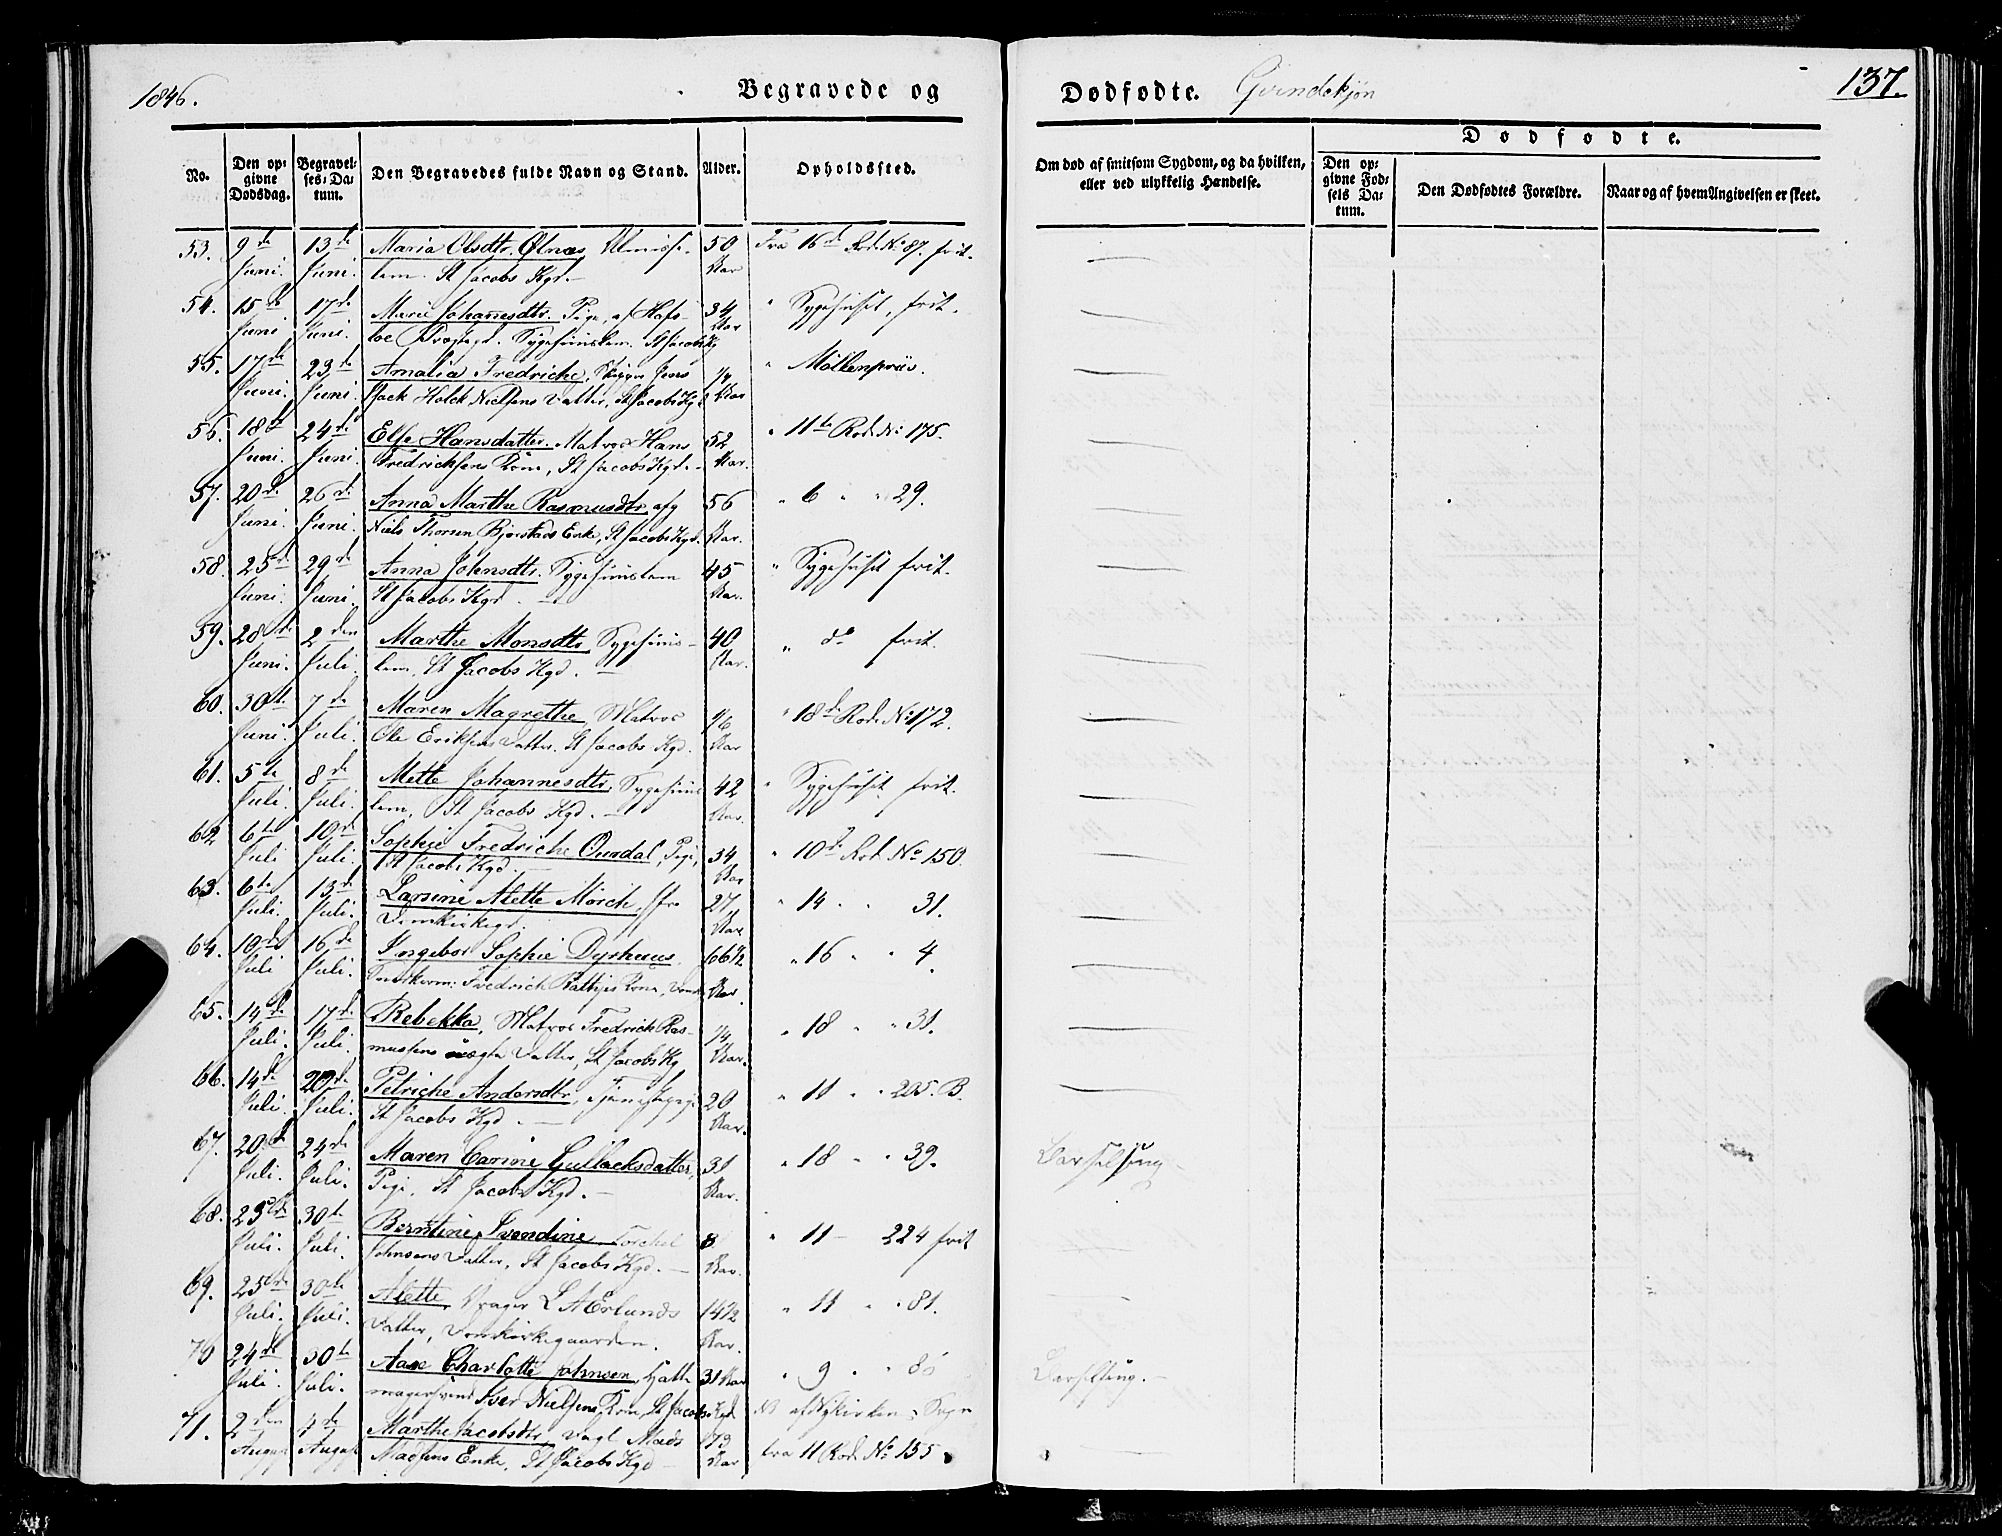 1846.
Begravede og
Dødfødte. Qvindekjøn
137.
No.
Den opgivne Dødsdag.
Begravelses-Datum.
Den Begravedes fulde Navn og Stand.
Alder.
Opholdssted.
Om død af smitsom Sygdom, og da hvilken, eller ved ulykkelig Hændelse.
Dødfødte.
Den opgivne Fødsels Datum.
Den Dødfødtes Forældre.
Naar og af hvem Angivelsen er skeet.
53. 9de 13de Maria Olsdtr. Ølnæs, 50 Fra 16de Rode No 87. frit.
Juni. Juni. lem. St Jacobs Kgd. Aar
54. 15de 17de Marie Johannesdtr. Pige, af Hafs- 34 " Sygehuset, frit.
Juni. Juni. loe Præstegd. Sygehuuslem. St Jacobs Kg Aar
55. 17de 23de Amalia Fredriche, Skipper Jens 1/4 " Møllenpriis.
Juni. Juni. Holck Nielsens Datter, St Jacobs Kgd Aar
56. 18de 24de Else Hansdatter. Matros Hans 52 " 11te Rode No 175.
Juni. Juni. Fredrichsens Kone, St Jacobs Kgd. Aar.
57. 20de 26de Anna Marthe Rasmusdtr. afg 56 " 6 " " 29.
Juni. Juni. Niels Thorsen Bjørstads Enke, St Jacobs Kgd. Aar.
58. 25de 29de Anna Johnsdtr. Sygehuuslem 45 " Sygehuset frit.
Juni. Juni. St Jacobs Kgd. Aar.
59. 28de 2den Marthe Monsdtr, Sygehuus- 40 " do frit.
Juni. Juli. lem, St Jacobs Kgd. Aar.
60. 30te 7de Maren Magrethe, Matros 1/6 " 18de Rode No 172.
Juni. Juli. Ole Eriksens Datter. St Jacobs Kgd. Aar
61. 5te 8de Mette Johannesdtr, Sygehuus 42 " Sygehuset frit.
Juli. Juli. lem, St Jacobs Kgd. Aar.
62 6te 10de Sophie Fredriche Ourdal, Pige, 34 " 10de Rode No 150
Juli Juli. St Jacobs Kgd. Aar
63. 6te 13de Larsine Alette Mørch, 27 " 14 " " 31.
Juli. Juli. Domkirkegd. Aar.
64. 10de 16de Ingebor Sophie Dyrhuus. 66 1/2 " 16 " " 4.
Juli Juli. Fredrich Kone, Aar.
65. 14de 17de Rebekka, Matros Fredrich Ras- 1/4 " 18 " " 31.
Juli. Juli. mussens uægte Datter, St Jacobs Kg Aar.
66. 14de 20de Petriche Andersdtr, Tjenestepige 20 " 11 " " 205. B.
Juli. Juli. St Jacobs Kgd. Aar.
67. 20de 24de Maren Carine Gullacksdatter, 31 " 18 " " 39. Barselseng.
Juli. Juli. Pige, St Jacobs Kgd. Aar.
68. 23de 30te Berntine Svendine Torchel 8 " 11 — 224 frit
Juli. Juli. Johnsens Datter, St Jacobs Kgd. Aar.
69. 25de 30te Alette, L A Erlunds 14 1/2 " 11 " " 81.
Juli. Juli. Datter, Domkirkegaarden. Aar.
70 24de 30te Aase Charlotte Johnsen, Hatte 31 Aar " 9 " 80 Barselseng.
Juli. Juli. magersvend Iver Nielsens Kone, St Jacobs Kgd NB af Nykirkens Sogn
71. 2den 4de Marthe Jacobsdtr, Mads 73 fra 11 Rode No 155
August August Madsens Enke, St Jacobs Kgd Aar